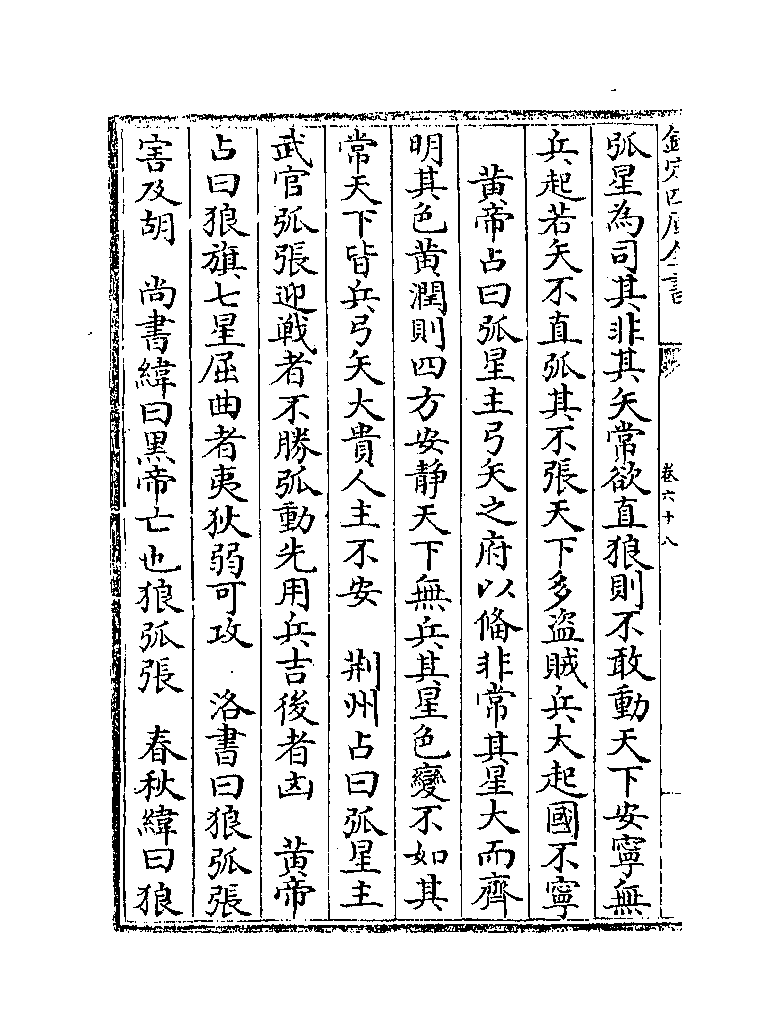 欽定四庫全書
卷六十八
弧星為司其非其矢常欲直狼則不敢動天下安寧無
兵起若矢不直弧其不張天下多盜賊兵大起國不寧
黄帝占曰弧星主弓矢之府以偹非常其星大而齊
明其色黄潤則四方安静天下無兵其星色變不如其
常天下皆兵弓矢大貴人主不安　荆州占曰弧星主
武官弧張迎戰者不勝弧動先用兵吉後者凶　黄帝
占曰狼旗七星屈曲者夷狄弱可攻　洛書曰狼弧張
害及胡　尚書緯曰黑帝亡也狼弧張　春秋緯曰狼